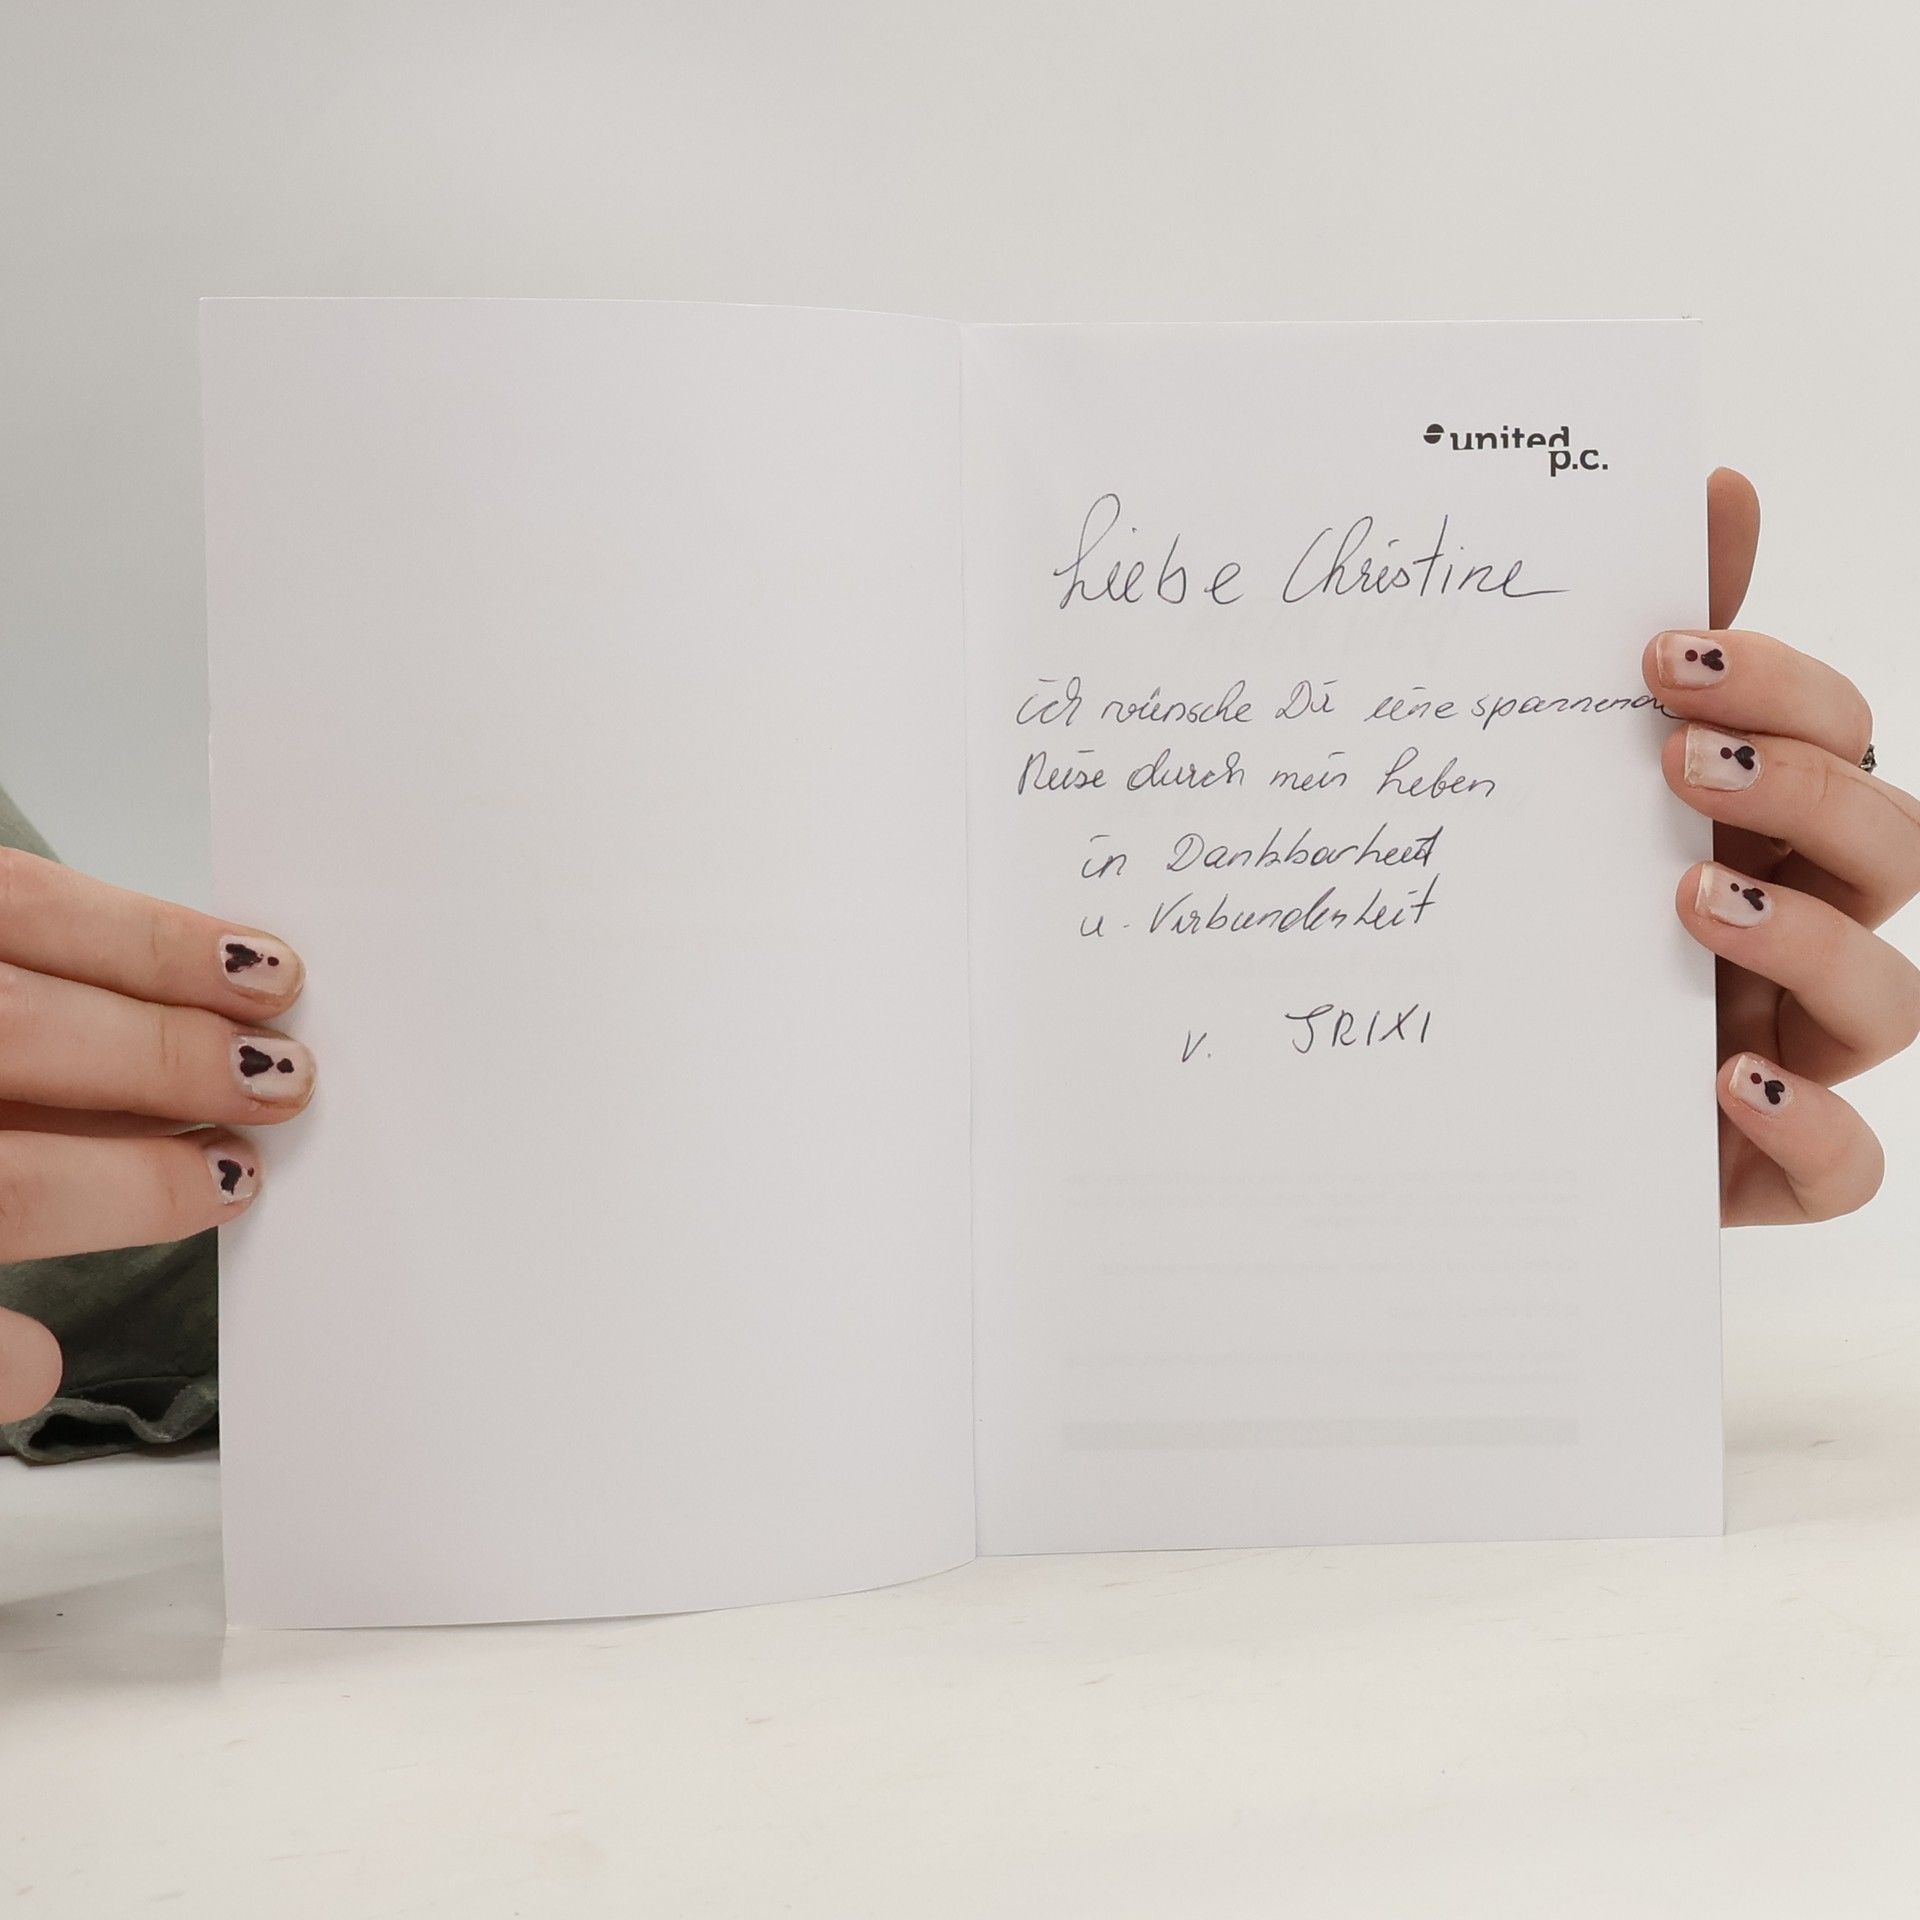 united
p.c.
Liebe Christine
ich wünsche Dir eine spannende
Reise durch mein Leben
in Dankbarkeit
u. Verbundenheit
v. TRIXI